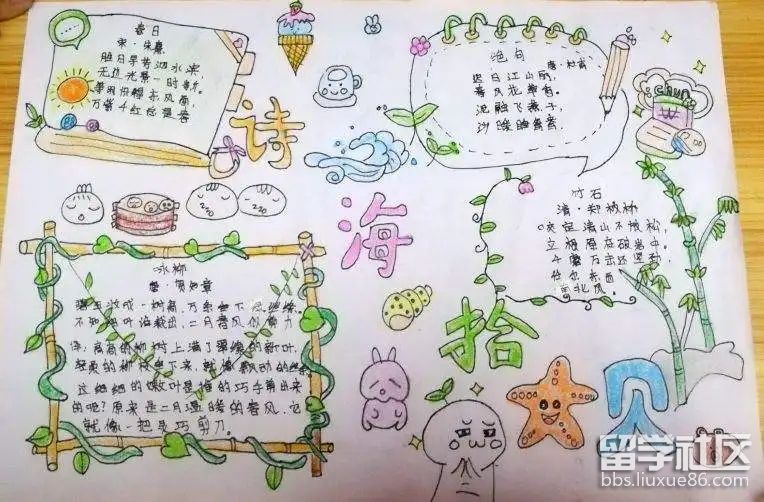 春日
宋·朱熹
胜日寻芳泗水滨
无边光景一时新
等闲识得东风面
万紫千红总是春
诗
海
拾
贝
绝句
唐·杜甫
迟日江山丽,
春风花草香。
泥融飞燕子,
沙暖睡鸳鸯。
chun
竹石
清·郑板桥
咬定青山不放松,
立根原在破岩中。
千磨万击还坚劲,
任尔东西
南北风。
咏柳
唐·贺知章
碧玉妆成一树高,万条垂下绿丝绦。
不知细叶谁裁出,二月春风似剪刀
译:高高的柳树上满了翠绿的新叶,
轻柔的柳枝垂下来,就像飘动的丝绦
这细细的嫩叶是谁的巧手剪出来
的呢?原来是二月温暖的春风,它
就像一把灵巧剪刀。
留学社区
bbs.liuxue86.com